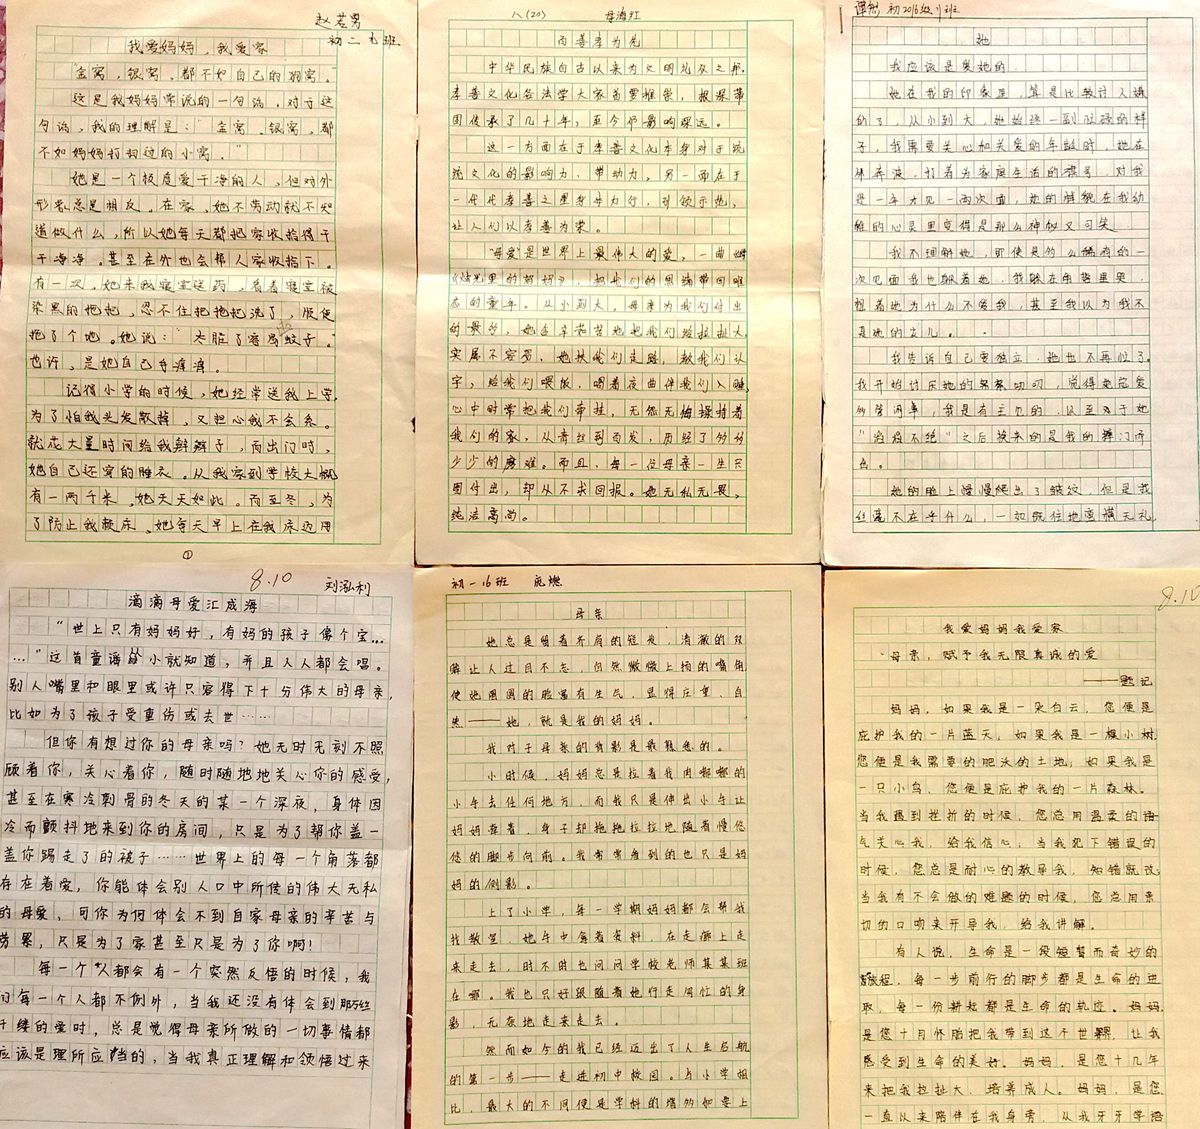 赵若男
初二七班
我爱妈妈，我爱家
“金窝，银窝，都不如自己的狗窝。”
这是我妈妈常说的一句话，对于这
句话，我的理解是：“金窝、银窝，都
不如妈妈打扫过的小窝。”
她是一个极度爱干净的人，但对外
形象总是相反。在家，她不劳动就不知
道做什么，所以她每天都把家收拾得干
干净净。甚至在外也会帮人家收拾下。
有一次，她来我寝室送药，看着寝室被
染黑的拖把，忍不住把拖把洗了，顺便
拖了个地。她说：“太脏了容易惹蚊子。”
也许，是她自己手痒痒。
记得小学的时候，她经常送我上学，
为了怕我头发散掉，又担心我不会系。
就花大量时间给我辫辫子，而出门时，
她自己还穿的睡衣。从我家到学校大概
有一两千米，她天天如此。而至冬，为
了防止我赖床，她每天早上在我床边用
①
八(20) 母海红
百善孝为先
中华民族自古以来为文明礼仪之邦，
孝善文化各法学大家首要推崇，根深蒂
固传承了几千年，至今仍影响深远。
这一方面在于孝善文化本身对于统
统文化的影响力、带动力，另一面在于
一代代孝善之星身体力行，引领示范，
让人们以孝善为荣。
“母爱”是世界上最伟大的爱，一曲
《烛光里的妈妈》，把我们的思绪带回难
忘的童年。从小到大，母亲为我们付出
的最多，她含辛茹苦地把我们给拉扯大，
实属不容易，她扶我们走路，教我们认
字，给我们喂饭，唱着夜曲伴我们入睡，
心中时常把我们牵挂，无怨无悔操持着
我们的家，从青丝到白发，历经了多多
少少的磨难。而且，每一位母亲一生只
图付出，却从不求回报。她无私无畏，
纯洁高尚。
谭想 初2016级11班
她
我应该是爱她的。
她在我的印象里，算是比较讨人嫌
的了，从小到大，她始终一副忙碌的样
子，我需要关心和关爱的年龄时，她在
外奔波，打着为家庭生活的旗号，对我
是一年才见一两次面，她的样貌在我幼
稚的心灵里变得是那么神秘又可笑。
我不理解她，即使是多么稀有的一
次见面我也躲着她，我躲在角落里哭，
想着她为什么不爱我，甚至我以为我不
是她的女儿。
我告诉自己要独立，她也不再忙了。
我开始讨厌她的絮絮叨叨，觉得她总爱
多管闲事，我是有主见的，以至对于她
“滔滔不绝”之后换来的是我的摔门而
出。
她的脸上慢慢爬出了皱纹，但是我
丝毫不在乎什么，一如既往地蛮横无礼，
8.10 刘泓利
滴滴母爱汇成海
“世上只有妈妈好，有妈的孩子像个宝…
…”这首童谣从小就知道，并且人人都会唱。
别人嘴里和眼里或许只容得下十分伟大的母亲，
比如为了孩子受重伤或去世……
但你有想过你的母亲吗？她无时无刻不照
顾着你，关心着你，随时随地地关心你的感受，
甚至在寒冷刺骨的冬天的某一个深夜，身体因
冷而颤抖地来到你的房间，只是为了帮你盖一
盖你踢走了的被子……世界上的每一个角落都
存在着爱，你能体会别人口中所传的伟大无私
的母爱，可你为何体会不到自家母亲的辛苦与
劳累，只是为了家甚至只是为了你啊！
每一个人都会有一个突然反悟的时候，我
们每一个人都不例外，当我还没有体会到那万丝
千缕的爱时，总是觉得母亲所做的一切事情都
应该是理所应当的，当我真正理解和领悟过来
初一16班 庞燃
母亲
她总是留着齐肩的短发，清澈的双
眸让人过目不忘，自然微微上扬的嘴角
使她圆圆的脸富有生气，显得庄重、自
然——她，就是我的妈妈。
我对于母亲的背影是最熟悉的。
小时候，妈妈总是拉着我肉嘟嘟的
小手去任何地方，而我只是伸出小手让
妈妈牵着，身子却拖拖拉拉地随着慢悠
悠的脚步向前。我常常看到的也只是妈
妈的侧影。
上了小学，每一学期妈妈都会帮我
找教室，她手中拿着资料，在走廊上走
来走去，时不时也问问学校老师某某班
在哪。我也只好跟随着她行走匆忙的身
影，无奈地走来走去。
然而如今的我已经迈出了人生启航
的第一步——走进初中校园。与小学相
比，最大的不同便是学科的增多如要上
8.10
我爱妈妈我爱家
·母亲，赋予我无限真诚的爱
——题记
妈妈，如果我是一朵白云，您便是
庇护我的一片蓝天；如果我是一棵小树，
您便是我需要的肥沃的土地；如果我是
一只小鸟，您便是庇护我的一片森林。
当我遇到挫折的时候，您总用温柔的语
气关心我，给我信心；当我犯下错误的
时候，您总是耐心的教导我，知错就改；
当我有不会做的难题的时候，您总用亲
切的口吻来开导我，给我讲解。
有人说，生命是一段短暂而奇妙的
旅程，每一步前行的脚步都是生命的进
取，每一份新知都是生命的轨迹。妈妈，
是您十月怀胎把我带到这个世界，让我
感受到生命的美好。妈妈，是您十几年
来把我拉扯大，培养成人。妈妈，是您
一直以来陪伴在我身旁，从我牙牙学语